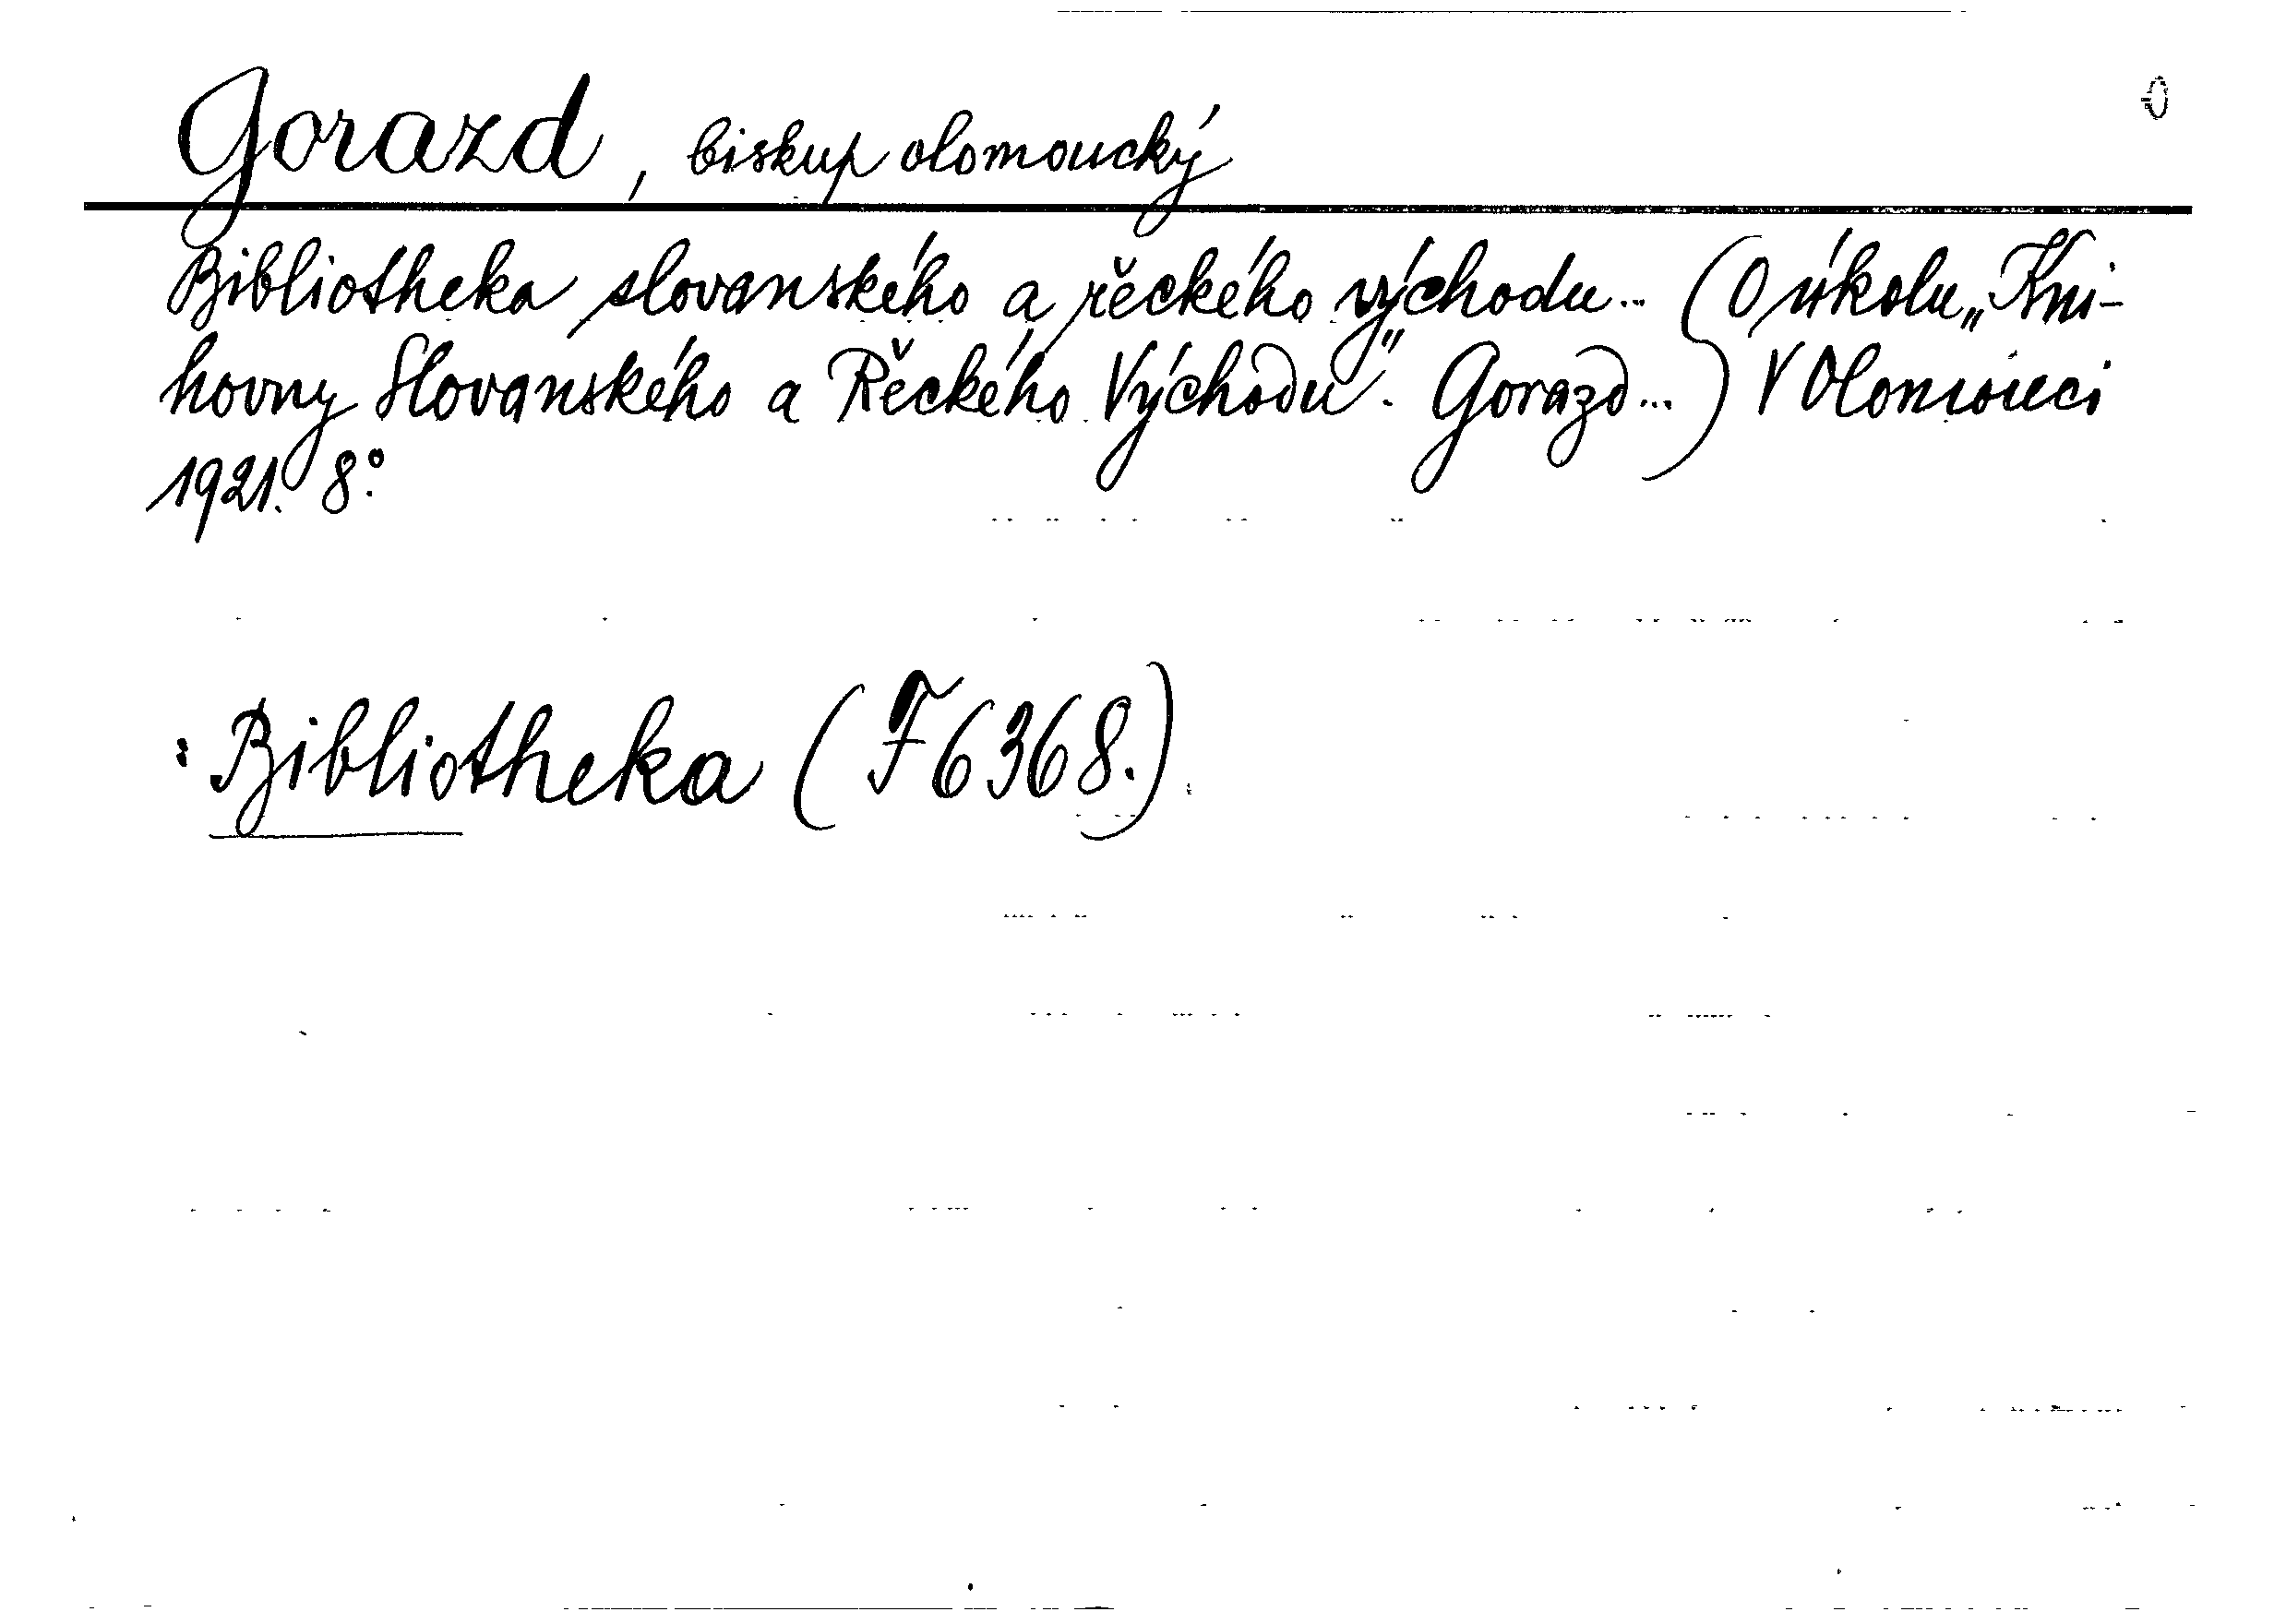 Gorazd, biskup olomoucký
Bibliotheka slovanského a řeckého východu... (O úkolu „Kni-
hovny Slovanského a Řeckého Východu". Gorazd...) V Olomouci
1921. 8°.
Bibliotheka (F 6368.)